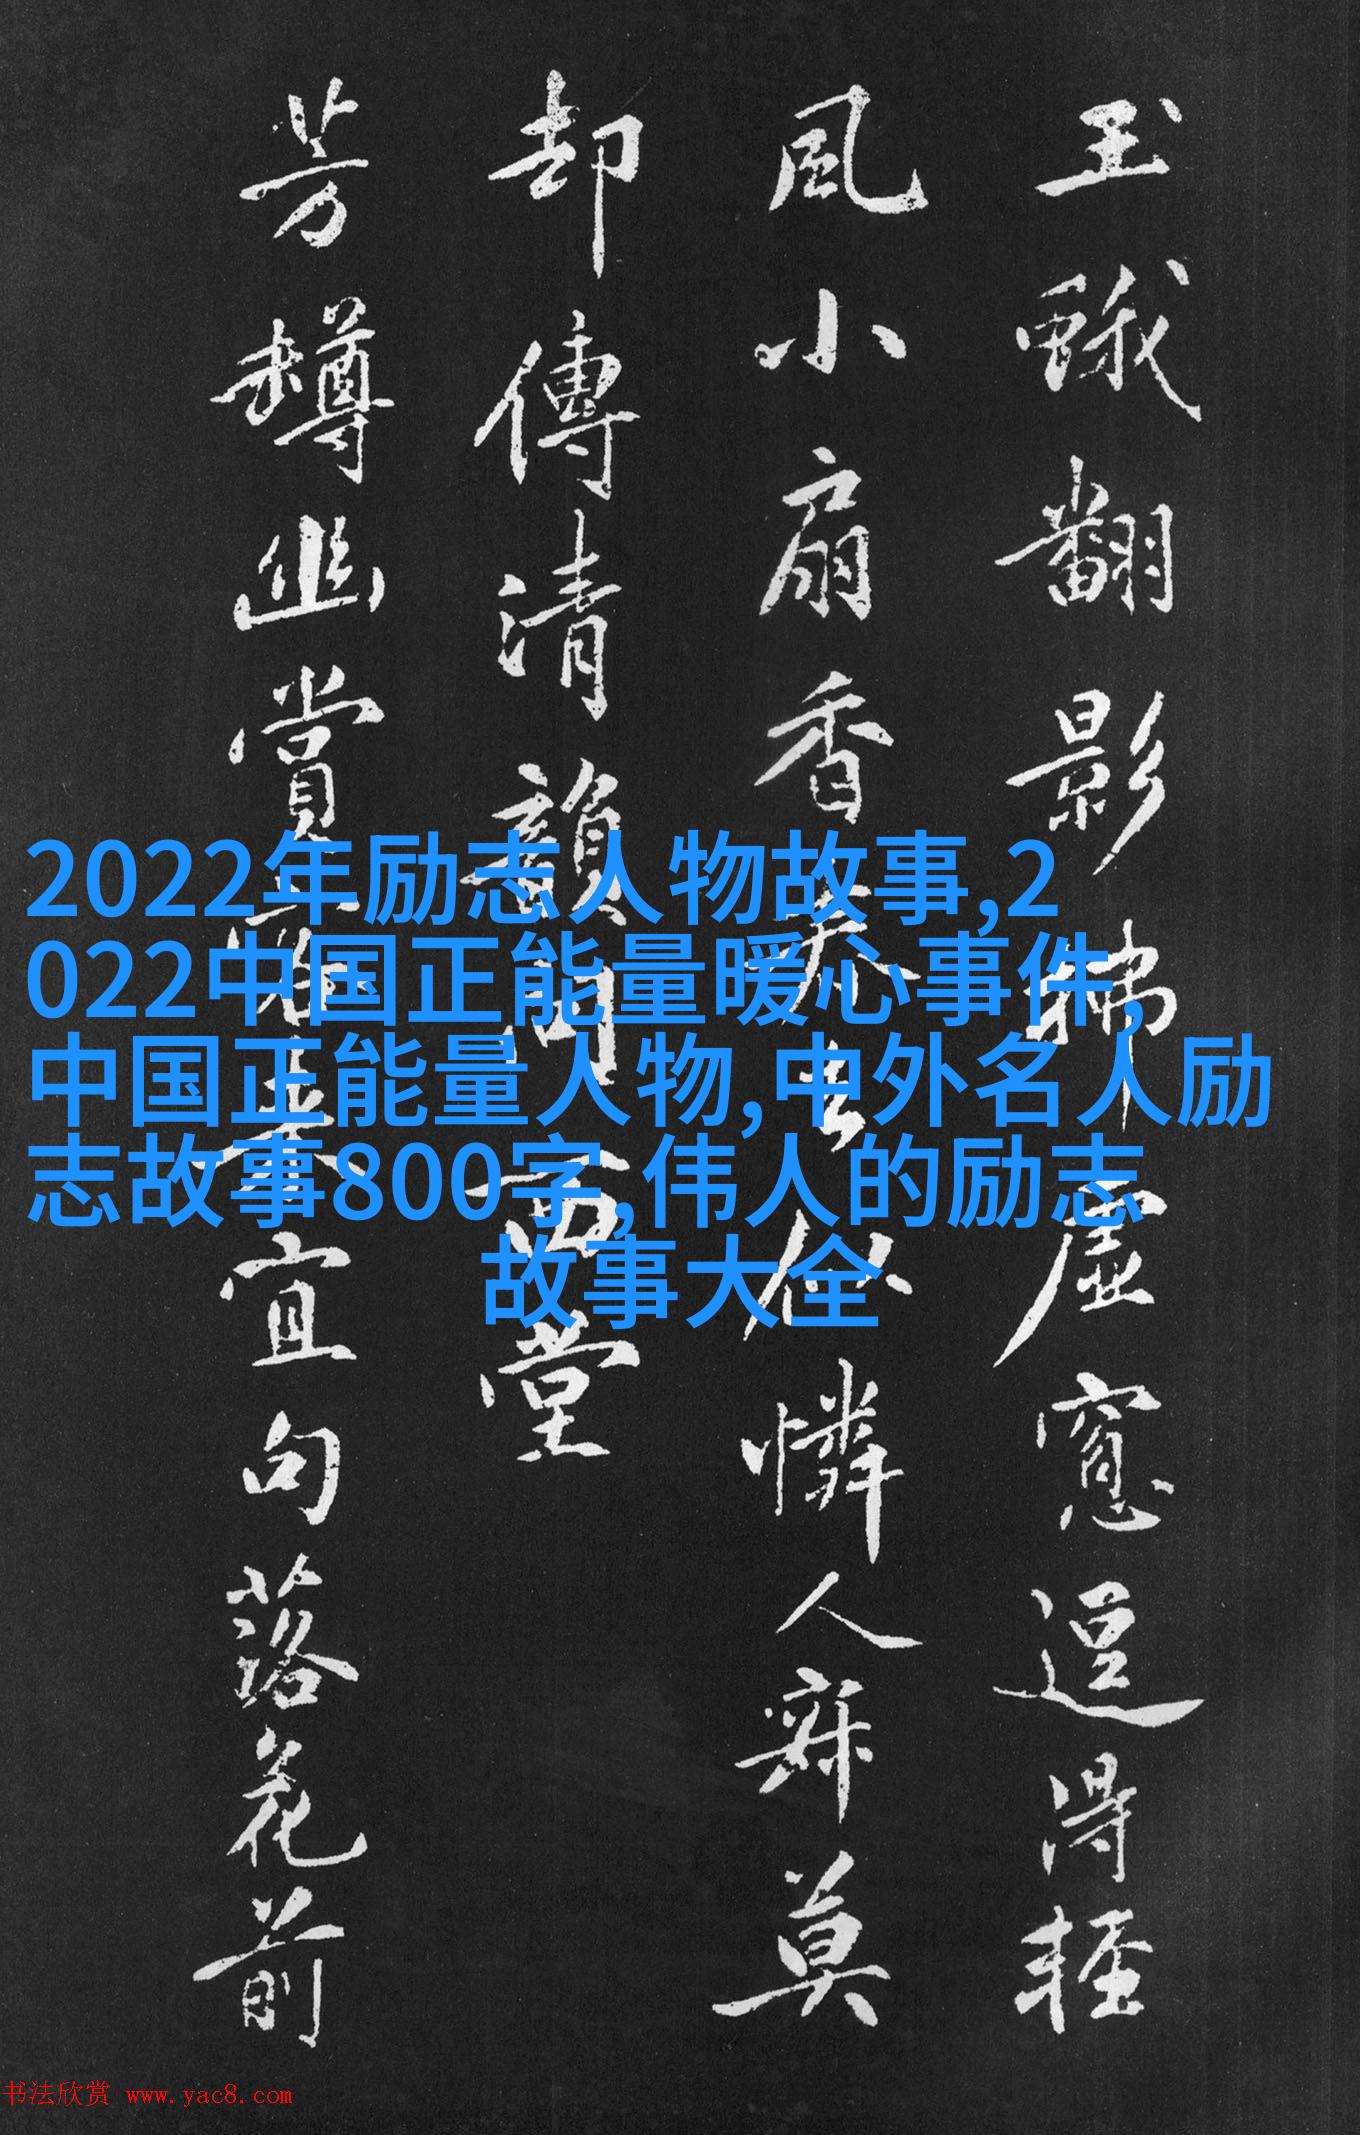 玉蛾翻影虛窻逗得輕
風小扇香似憐人寐莫
却傳清韻向西堂
芳罇幽賞宜句落花前
2022年励志人物故事,2
022中国正能量暖心事件,
中国正能量人物,中外名人励
志故事800字,伟人的励志
故事大全
书法欣赏 www.yac8.com